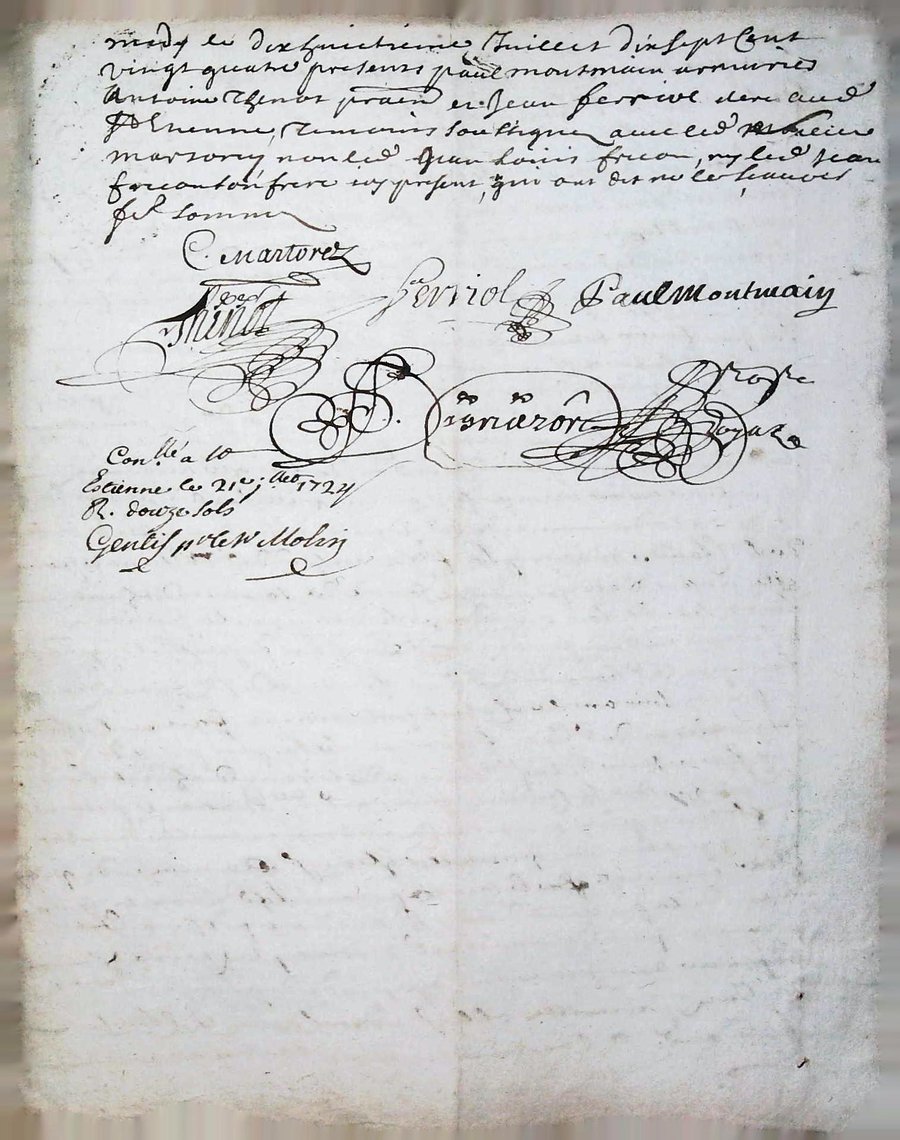 midy le dix huictieme Juillet dix sept Cent
vingt quatre presents paul montmain armurier
Antoine Thinot pratn et Jean ferriol clerc aud
St Etienne, temoins soussignes avec led
martorey non led Jean Louis fricon, ny led Jean
fricon son frere icy present, qui ont dit ne le scavoir
fe sommé
C. Martorez
Thinot
Ferriol
Paul Montmain
Conllé a St
Estienne le 21e 1724
R. douze sols
Gentis pr le Sr Molin